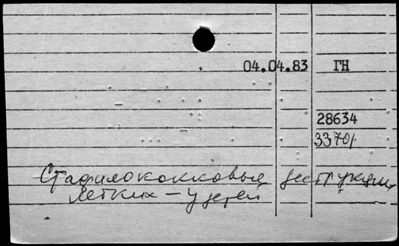 04.04.83 ГН
28634
33701
Стафилококковые деструкции
легких – у детей